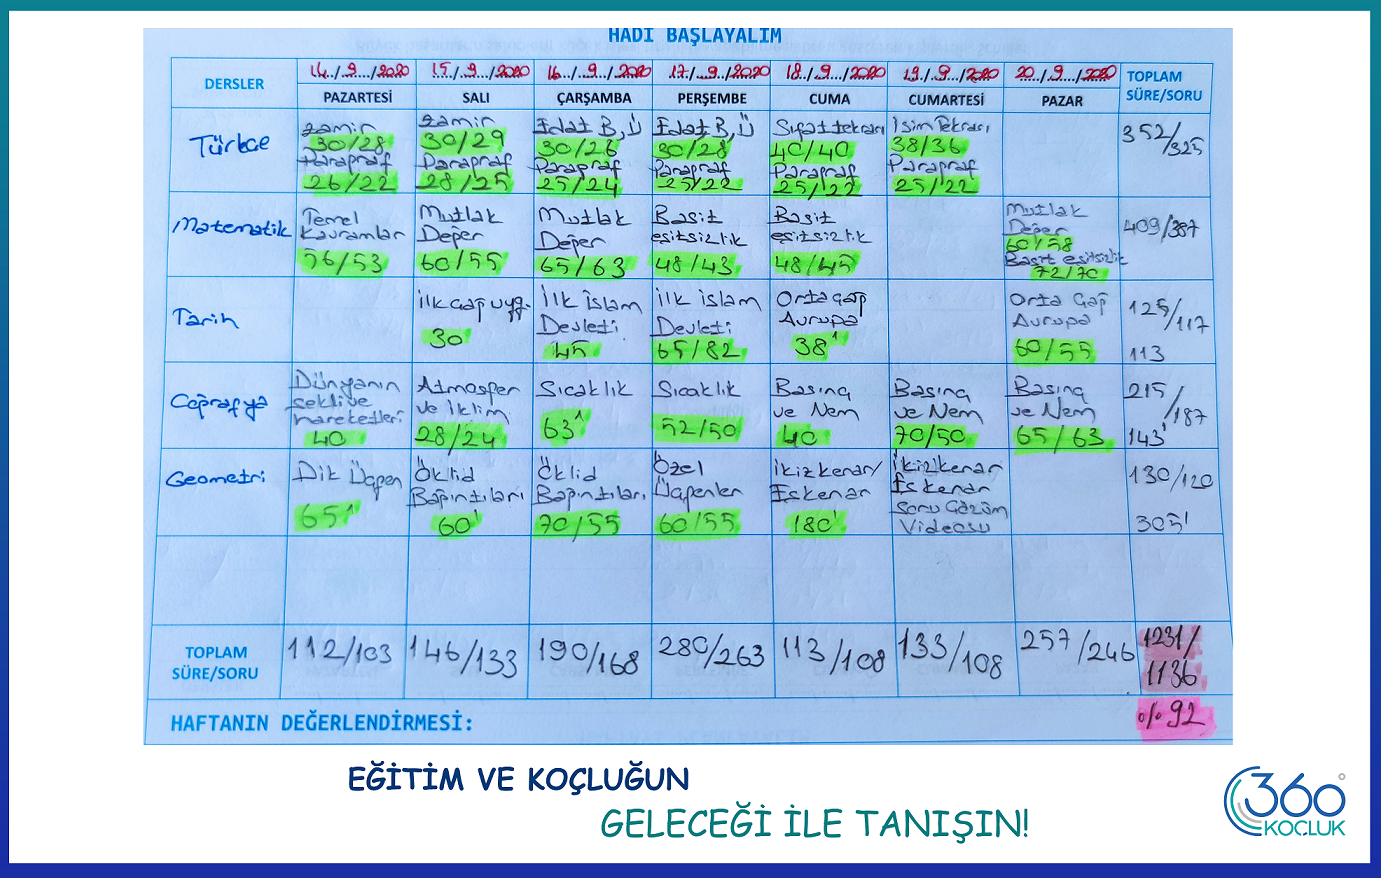 HADİ BAŞLAYALIM
DERSLER 14../.9.../2020 15./.9.../2020 16../.9.../2020 17../.9.../2020 18../.9.../2020 19../.9.../2020 20.../.9.../2020 TOPLAM SÜRE/SORU
PAZARTESİ SALI ÇARŞAMBA PERŞEMBE CUMA CUMARTESİ PAZAR
Türkçe
Zamir
30/28
Paragraf
26/22
Zamir
30/29
Paragraf
28/25
Edat B, Ü
30/26
Paragraf
25/24
Edat B, Ü
30/28
Paragraf
25/22
Sıfat tekrarı
40/40
Paragraf
25/22
İsim Tekrarı
38/36
Paragraf
25/22
352/325
Matematik
Temel
Kavramlar
56/53
Mutlak
Değer
60/55
Mutlak
Değer
65/63
Basit
eşitsizlik
48/43
Basit
eşitsizlik
48/45
Mutlak
Değer
60/58
Basit eşitsizlik
72/70
409/387
Tarih
İlk Çağ Uyg.
30'
İlk İslam
Devleti
45
İlk İslam
Devleti
65/82
Orta Çağ
Avrupa
38'
Orta Çağ
Avrupa
60/55
125/117
113
Coğrafya
Dünyanın
şekli ve
hareketleri
40
Atmosfer
ve İklim
28/24
Sıcaklık
63'
Sıcaklık
52/50
Basınç
ve Nem
40
Basınç
ve Nem
70/50
Basınç
ve Nem
65/63
215/187
143'
Geometri
Dik Üçgen
65'
Öklid
Bağıntıları
60'
Öklid
Bağıntıları
70/55
Özel
Üçgenler
60/55
İkizkenar/
Eşkenar
180'
İkizkenar
Eşkenar
Soru Çözüm
Videosu
130/120
305'
TOPLAM
SÜRE/SORU
112/103 146/133 190/168 280/263 113/108 133/108 257/246 1231/
1136
HAFTANIN DEĞERLENDİRMESİ: %92
EĞİTİM VE KOÇLUĞUN
GELECEĞİ İLE TANIŞIN!
360°
KOÇLUK